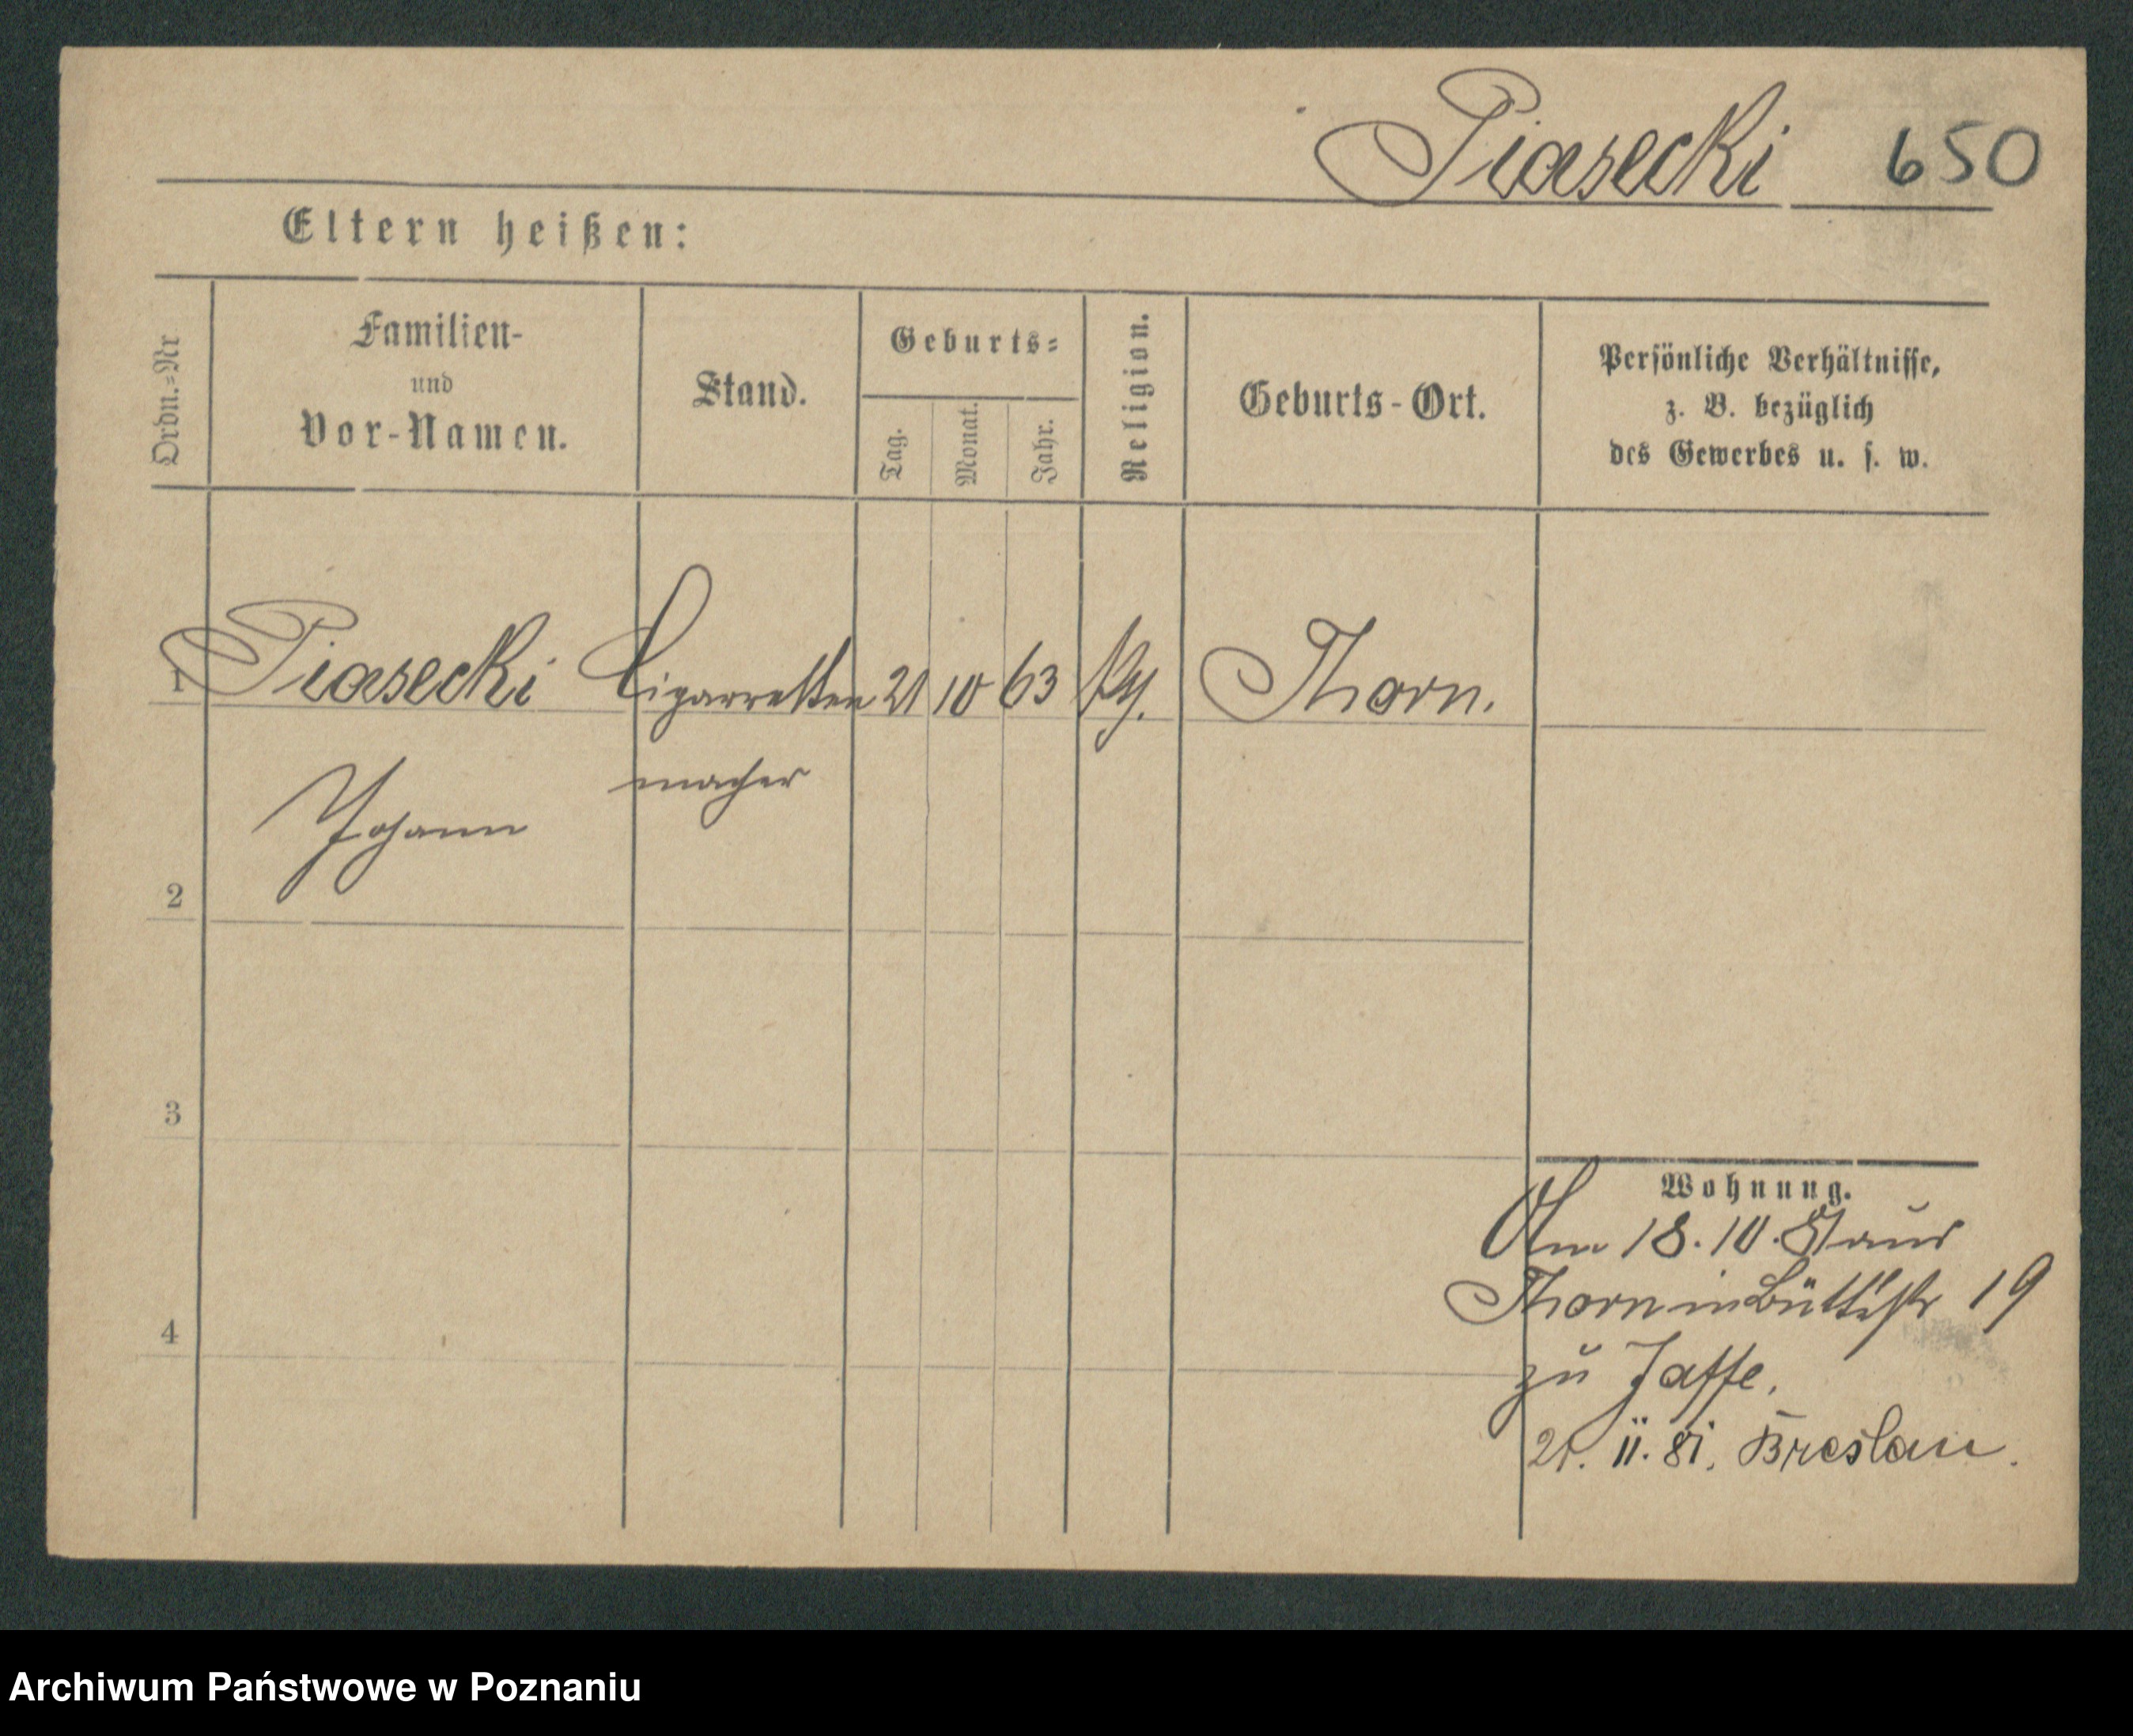 Piasecki 650
Eltern heißen:
Ordn.=Nr
Familien-
und
Vor-Namen.
Stand.
Geburts=
Tag.
Monat.
Jahr.
Religion.
Geburts-Ort.
Persönliche Verhältnisse,
z. B. bezüglich
des Gewerbes u. s. w.
1 Piasecki Cigarretten 21 10 63 Thorn.
macher
Johann
2
3
4
Wohnung.
Am 18. 10. 81 aus
Thorn in Büttelstr 19
zu Jaffe.
21. 11. 81. Breslau.
Archiwum Państwowe w Poznaniu